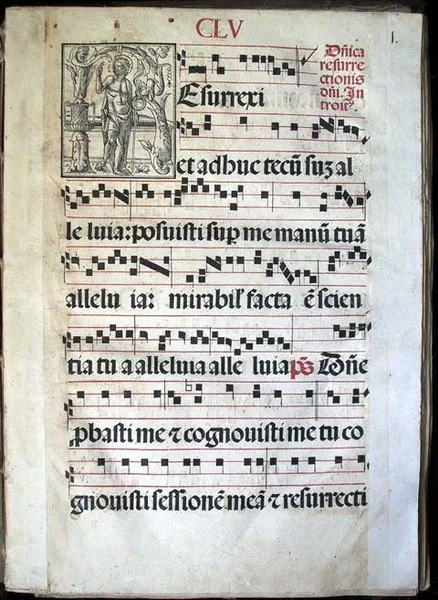 CLV
1.
Dñica
resurre
ctionis
dñi. In
troit⁹.
Resurrexi
et adhuc tecũ suʒ al
le luia: posuisti suꝑ me manũ tuã
allelu ia: mirabil' facta ẽ scien
tia tu a alleluia alle luia p̃s Dõne
ꝓbasti me ⁊ cognouisti me tu co
gnouisti sessionẽ meã ⁊ resurrecti